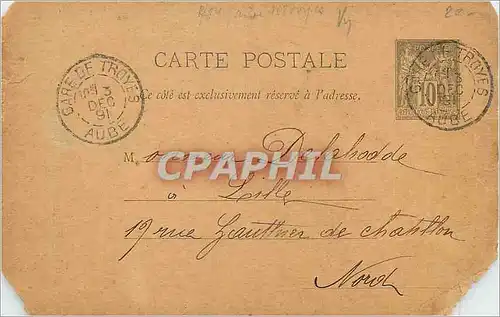 CARTE POSTALE
Ce côté est exclusivement réservé à l'adresse.
GARE DE TROYES
3
DEC
91
AUBE
GARE DE TROYES
3
DEC
91
AUBE
10
M
CPAPHIL
à Lille
19 rue Gauthier de Chatillon
Nord